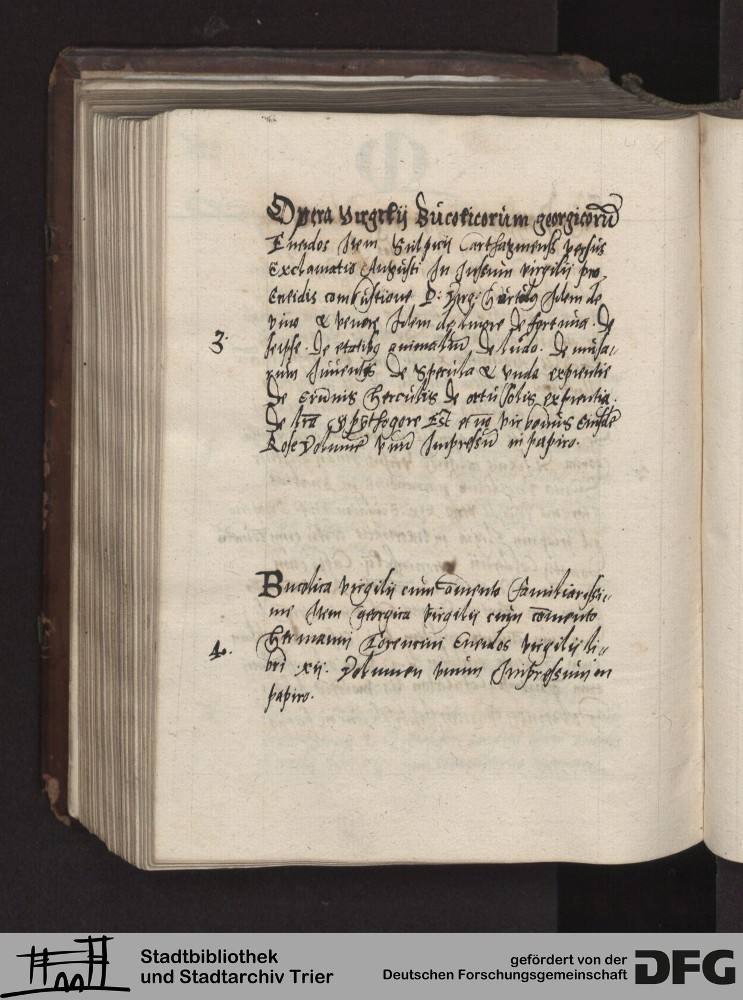 Opera Virgilij Bucolicorum georgicorū
Eneidos Item Sulpicij Carthaginensis versus
Exclamatio Augusti In Iussum virgilij pro
Eneidis combustione P: Virg: Item de
vino & venere Item de livore De fortuna. De
3.
seipso. De etatibꝫ animaliū De ludo. De musa-
rum Inventis De Specula & unda
De erumnis Herculis De ortu Solis
De lrā y pythagore Est et nō vir bonus
Rose Volumē vnū Impressū in papiro.
Bucolica virgilij cum comento familiarissi-
me Item georgica virgilij cum comento
Hermanni Torentini Eneidos virgilij li-
4.
bri .xij. Volumen vnum Impressum in
papiro.
Stadtbibliothek
und Stadtarchiv Trier
gefördert von der
Deutschen Forschungsgemeinschaft
DFG